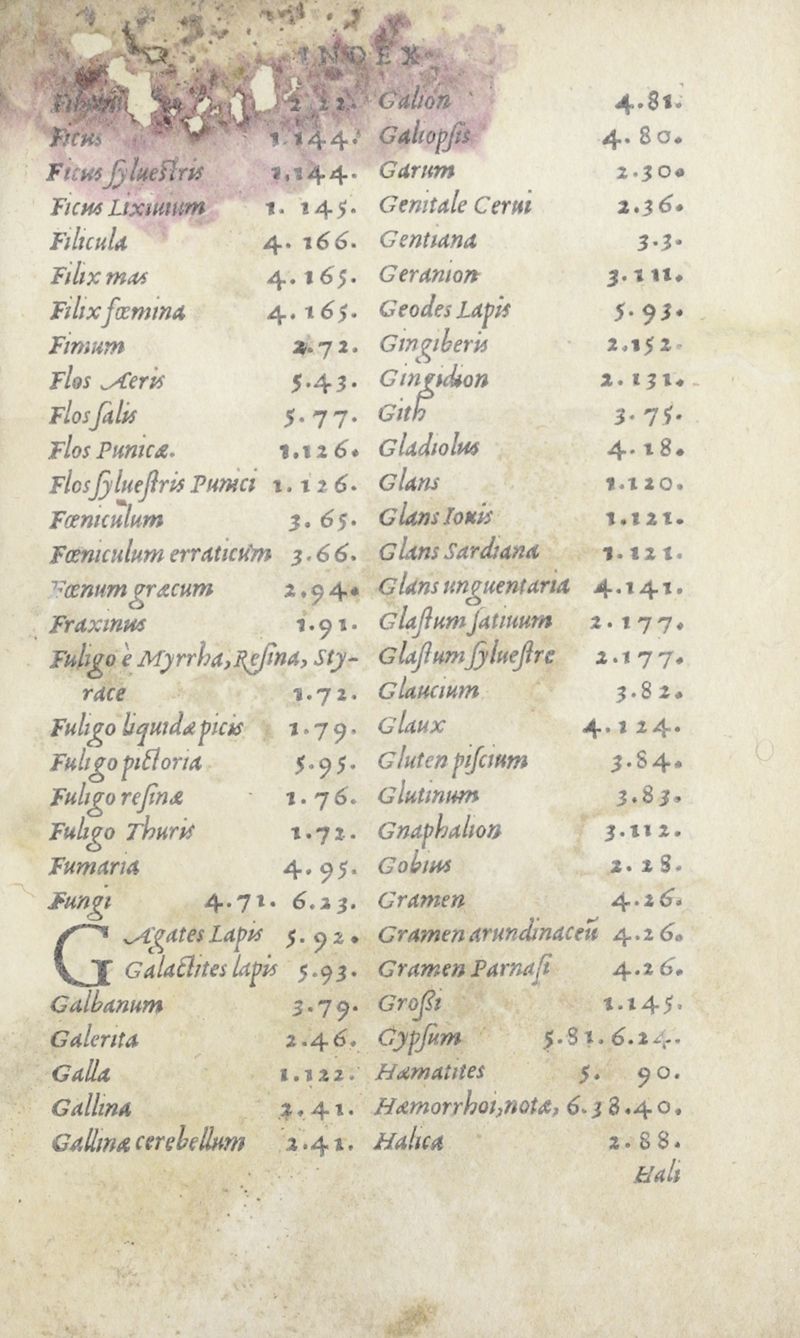 INDEX
2.22.
Ficus 1.144.
Ficus ſylueſtris 1.144.
Ficus Lixiuium 1. 145.
Filicula 4. 166.
Filix mas 4.165.
Filix fœmina 4.165.
Fimum 2.72.
Flos Aeris 5.43.
Flos ſalis 5.77.
Flos Punicæ. 1.126.
Flos ſylueſtris Punici 1.126.
Fœniculum 3.65.
Fœniculum erraticum 3.66.
Fœnum græcum 2.94.
Fraxinus 1.91.
Fuligo è Myrrha, Reſina, Sty-
race 1.72.
Fuligo liquidæ picis 1.79.
Fuligo pictoria 5.95.
Fuligo reſinæ 1.76.
Fuligo Thuris 1.72.
Fumaria 4.95.
Fungi 4.71. 6.23.
GAgates Lapis 5.92.
Galactites lapis 5.93.
Galbanum 3.79.
Galerita 2.46.
Galla 1.122.
Gallina 2.41.
Gallinæ cerebellum 2.41.
Galion 4.81.
Galiopſis 4.80.
Garum 2.30.
Genitale Cerui 2.36.
Gentiana 3.3.
Geranion 3.111.
Geodes Lapis 5.93.
Gingiberis 2.152.
Gingidion 2.131.
Gith 3.75.
Gladiolus 4.18.
Glans 1.120.
Glans Iouis 1.121.
Glans Sardiana 1.121.
Glans unguentaria 4.141.
Glaſtum ſatiuum 2.177.
Glaſtum ſylueſtre 2.177.
Glaucium 3.82.
Glaux 4.124.
Gluten piſcium 3.84.
Glutinum 3.83.
Gnaphalion 3.112.
Gobius 2.28.
Gramen 4.26.
Gramen arundinaceū 4.26.
Gramen Parnaſi 4.26.
Groſsi 1.145.
Gypſum 5.81.6.24.
Hæmatites 5. 90.
Hæmorrhoi, notæ, 6.38.40.
Halica 2.88.
Hali